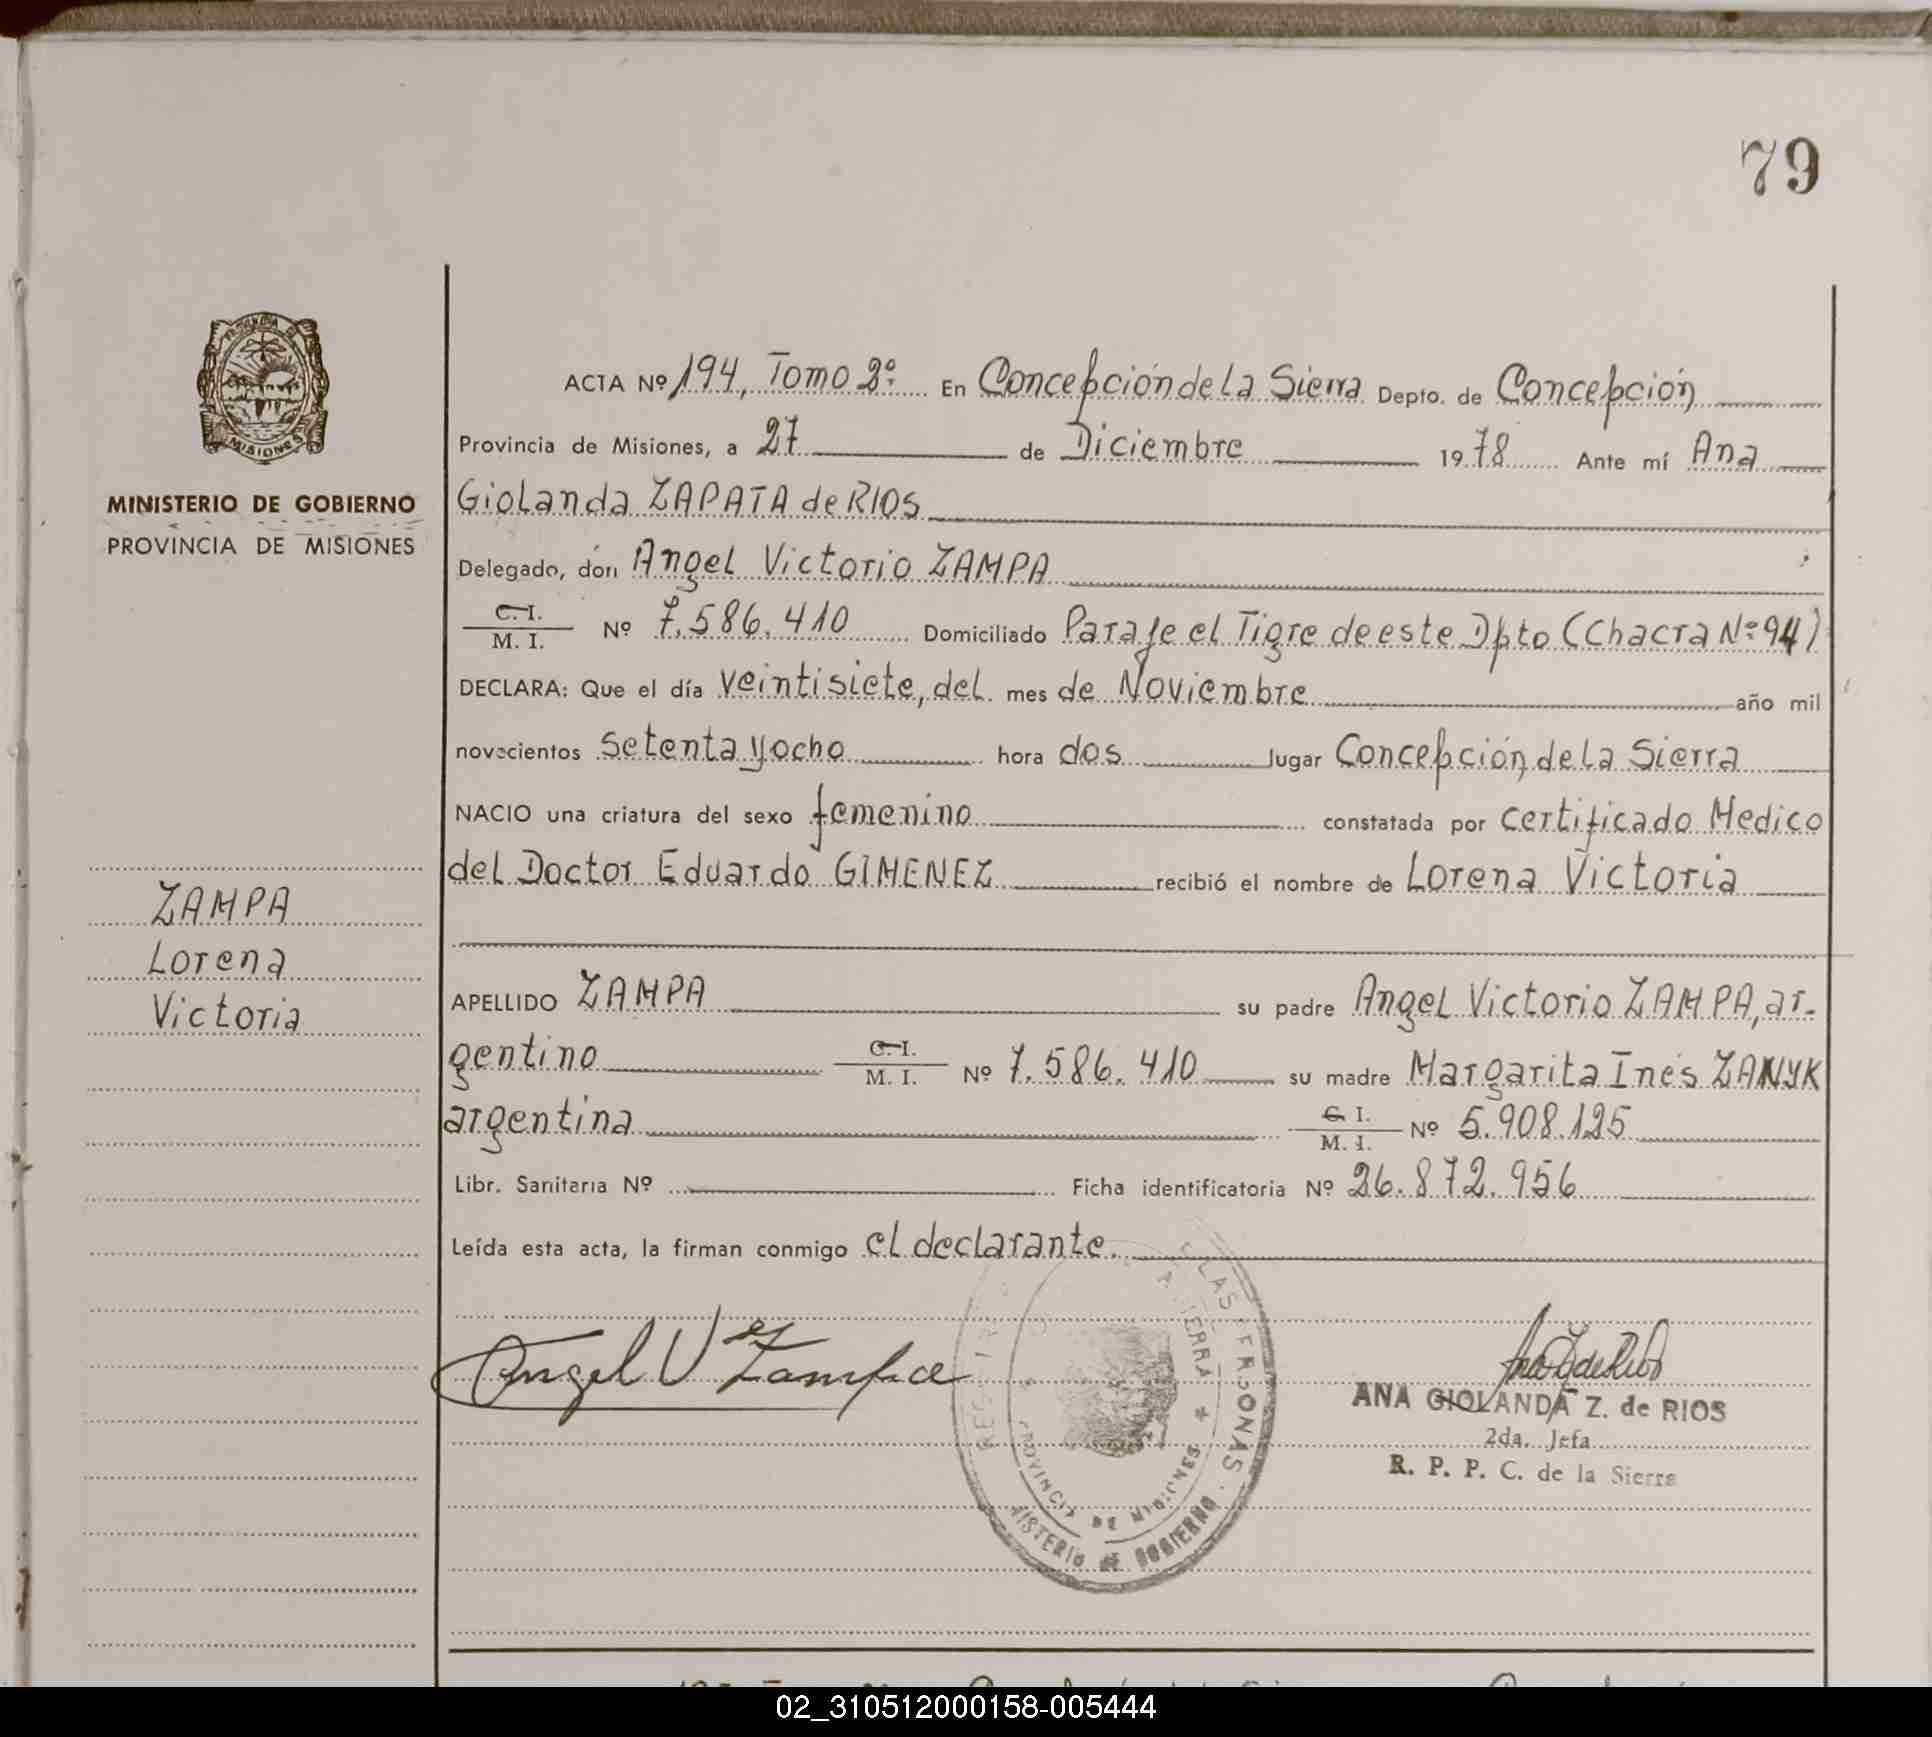 79
PROVINCIA DE
MISIONES
MINISTERIO DE GOBIERNO
PROVINCIA DE MISIONES
ZAMPA
Lorena
Victoria
ACTA Nº 194, Tomo 2º. En Concepción de la Sierra Depto. de Concepción
Provincia de Misiones, a 27 de Diciembre 1978 Ante mí Ana
Giolanda ZAPATA de RIOS
Delegado, don Angel Victorio ZAMPA
C.I. / M. I. Nº 7.586.410 Domiciliado Paraje el Tigre de este Dpto (Chacra Nº 94)
DECLARA: Que el día veintisiete, del mes de Noviembre año mil
novecientos setenta y ocho hora dos lugar Concepción de la Sierra
NACIO una criatura del sexo femenino constatada por certificado Medico
del Doctor Eduardo GIMENEZ recibió el nombre de Lorena Victoria
APELLIDO ZAMPA su padre Angel Victorio ZAMPA, ar-
gentino C.I. / M. I. Nº 7.586.410 su madre Margarita Inés ZANYK
argentina C I. / M. I. Nº 5.908.125
Libr. Sanitaria Nº Ficha identificatoria Nº 26.872.956
Leída esta acta, la firman conmigo el declarante.
Angel V Zampa
ANA GIOLANDA Z. de RIOS
2da. Jefa
R. P. P. C. de la Sierra
PROVINCIA DE MISIONES
02_310512000158-005444